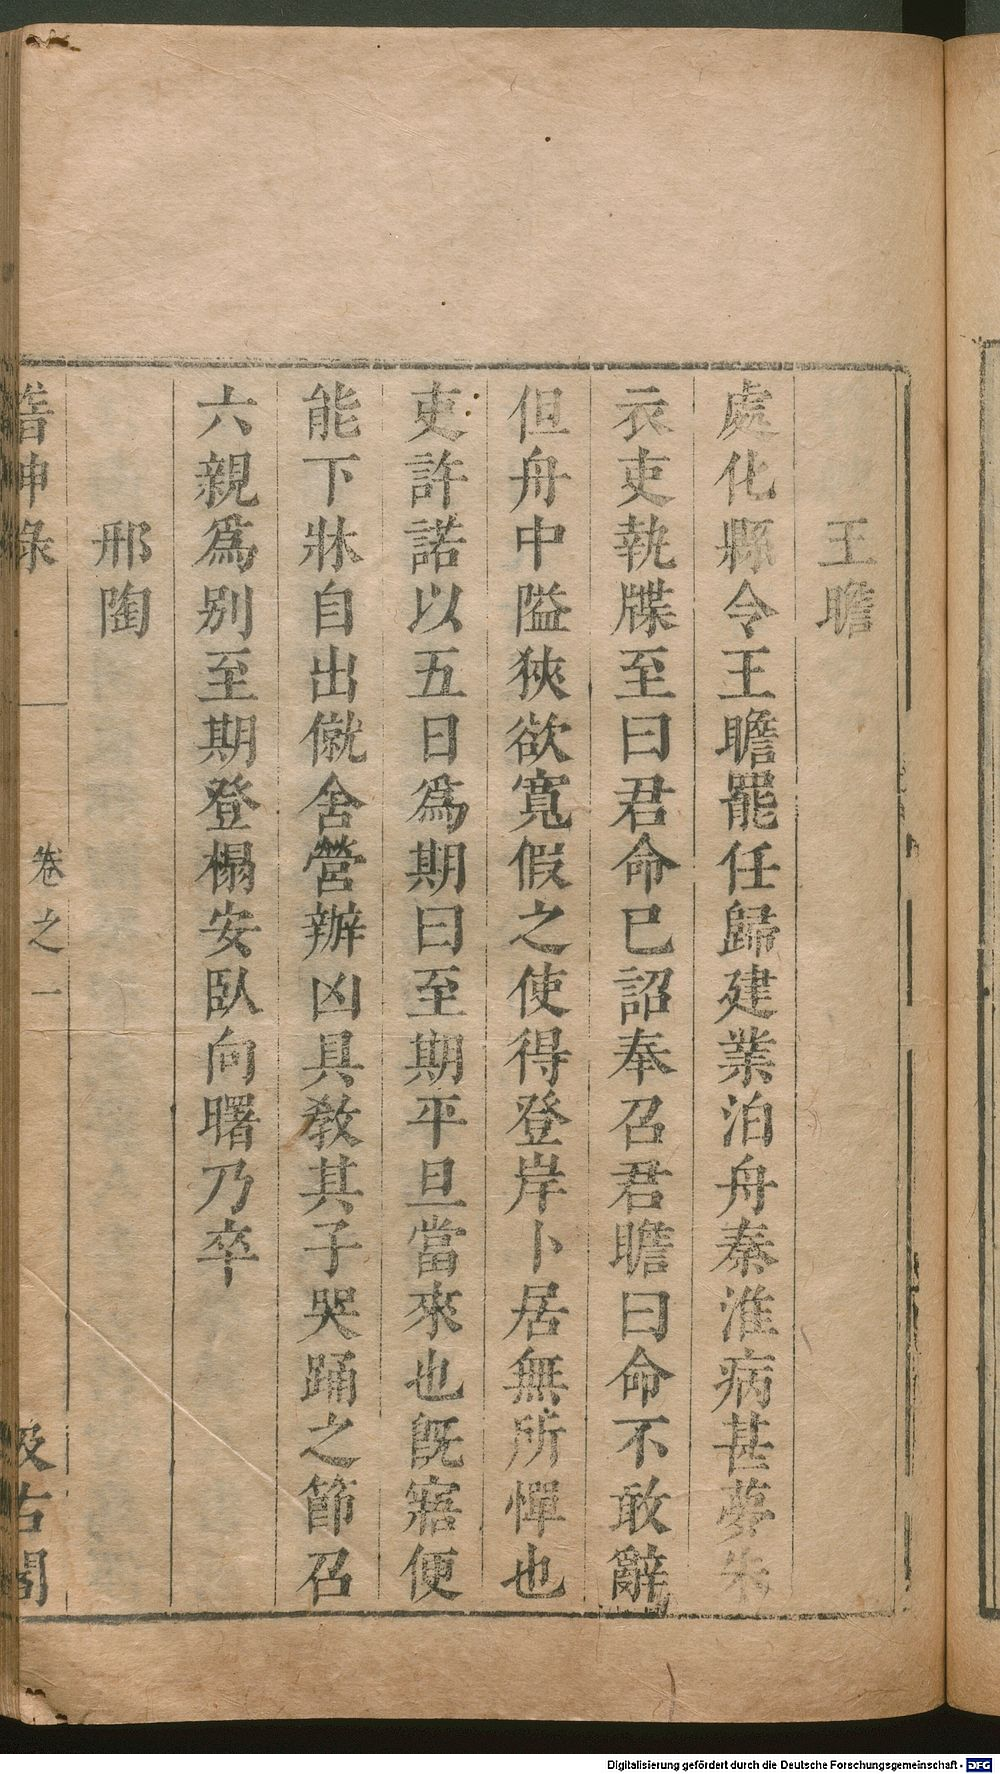 王瞻
處化縣令王瞻罷任歸建業泊舟秦淮病甚夢朱
衣吏執牒至曰君命已詔奉召君瞻曰命不敢辭
但舟中隘狹欲寬假之使得登岸卜居無所憚也
吏許諾以五日為期曰至期平旦當來也旣寤便
能下牀自出僦舍營辦凶具敎其子哭踊之節召
六親爲別至期登榻安臥向曙乃卒
邢陶
稽神錄 卷之一 汲古閣
Digitalisierung gefördert durch die Deutsche Forschungsgemeinschaft - DFG